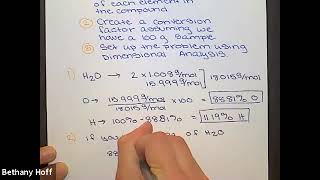 of each element in
the compound
② Create a conversion
factor assuming we
have a 100 g sample
③ Set up the problem using
Dimensional Analysis.
1) H₂O → 2 × 1.008 g/mol
18.015 g/mol
O → 15.999 g/mol × 100 = 88.81% O
18.015 g/mol
H → 100% - 88.81% = 11.19% H
2) if of H₂O
Bethany Hoff